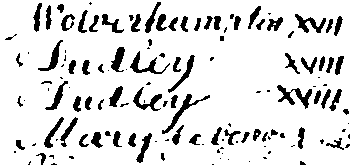 Wolverhampton xviii
Dudley xviii
Dudley xviii
Mary